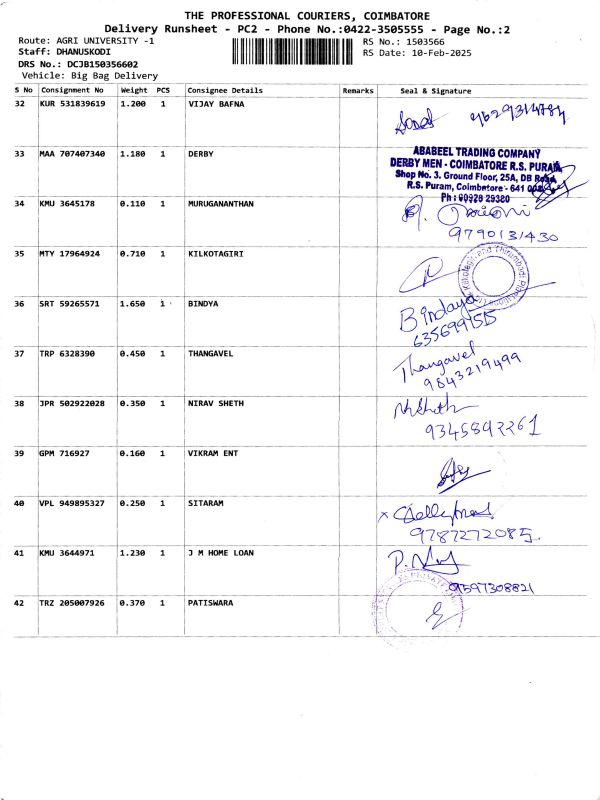 THE PROFESSIONAL COURIERS, COIMBATORE
Delivery Runsheet - PC2 - Phone No.:0422-3505555 - Page No.:2
Route: AGRI UNIVERSITY -1
RS No.: 1503566
Staff: DHANUSKODI
RS Date: 10-Feb-2025
DRS No.: DCJB150356602
Vehicle: Big Bag Delivery
S No Consignment No Weight PCS Consignee Details Remarks Seal & Signature
32 KUR 531839619 1.200 1 VIJAY BAFNA
9629314784
33 MAA 707407340 1.180 1 DERBY
ABABEEL TRADING COMPANY
DERBY MEN - COIMBATORE R.S. PURAM
Shop No. 3. Ground Floor, 25A, DB Road,
R.S. Puram, Coimbatore - 641 002
Ph : 99928 29380
34 KMU 3645178 0.110 1 MURUGANANTHAN
9790131430
35 MTY 17964924 0.710 1 KILKOTAGIRI
Kilkotagiri and Thirumbadi
36 SRT 59265571 1.650 1 BINDYA
Bindaya
6356991515
37 TRP 6328390 0.450 1 THANGAVEL
Thangavel
9843219499
38 JPR 502922028 0.350 1 NIRAV SHETH
9345892261
39 GPM 716927 0.160 1 VIKRAM ENT
40 VPL 949895327 0.250 1 SITARAM
9787272085
41 KMU 3644971 1.230 1 J M HOME LOAN
9597308821
42 TRZ 205007926 0.370 1 PATISWARA